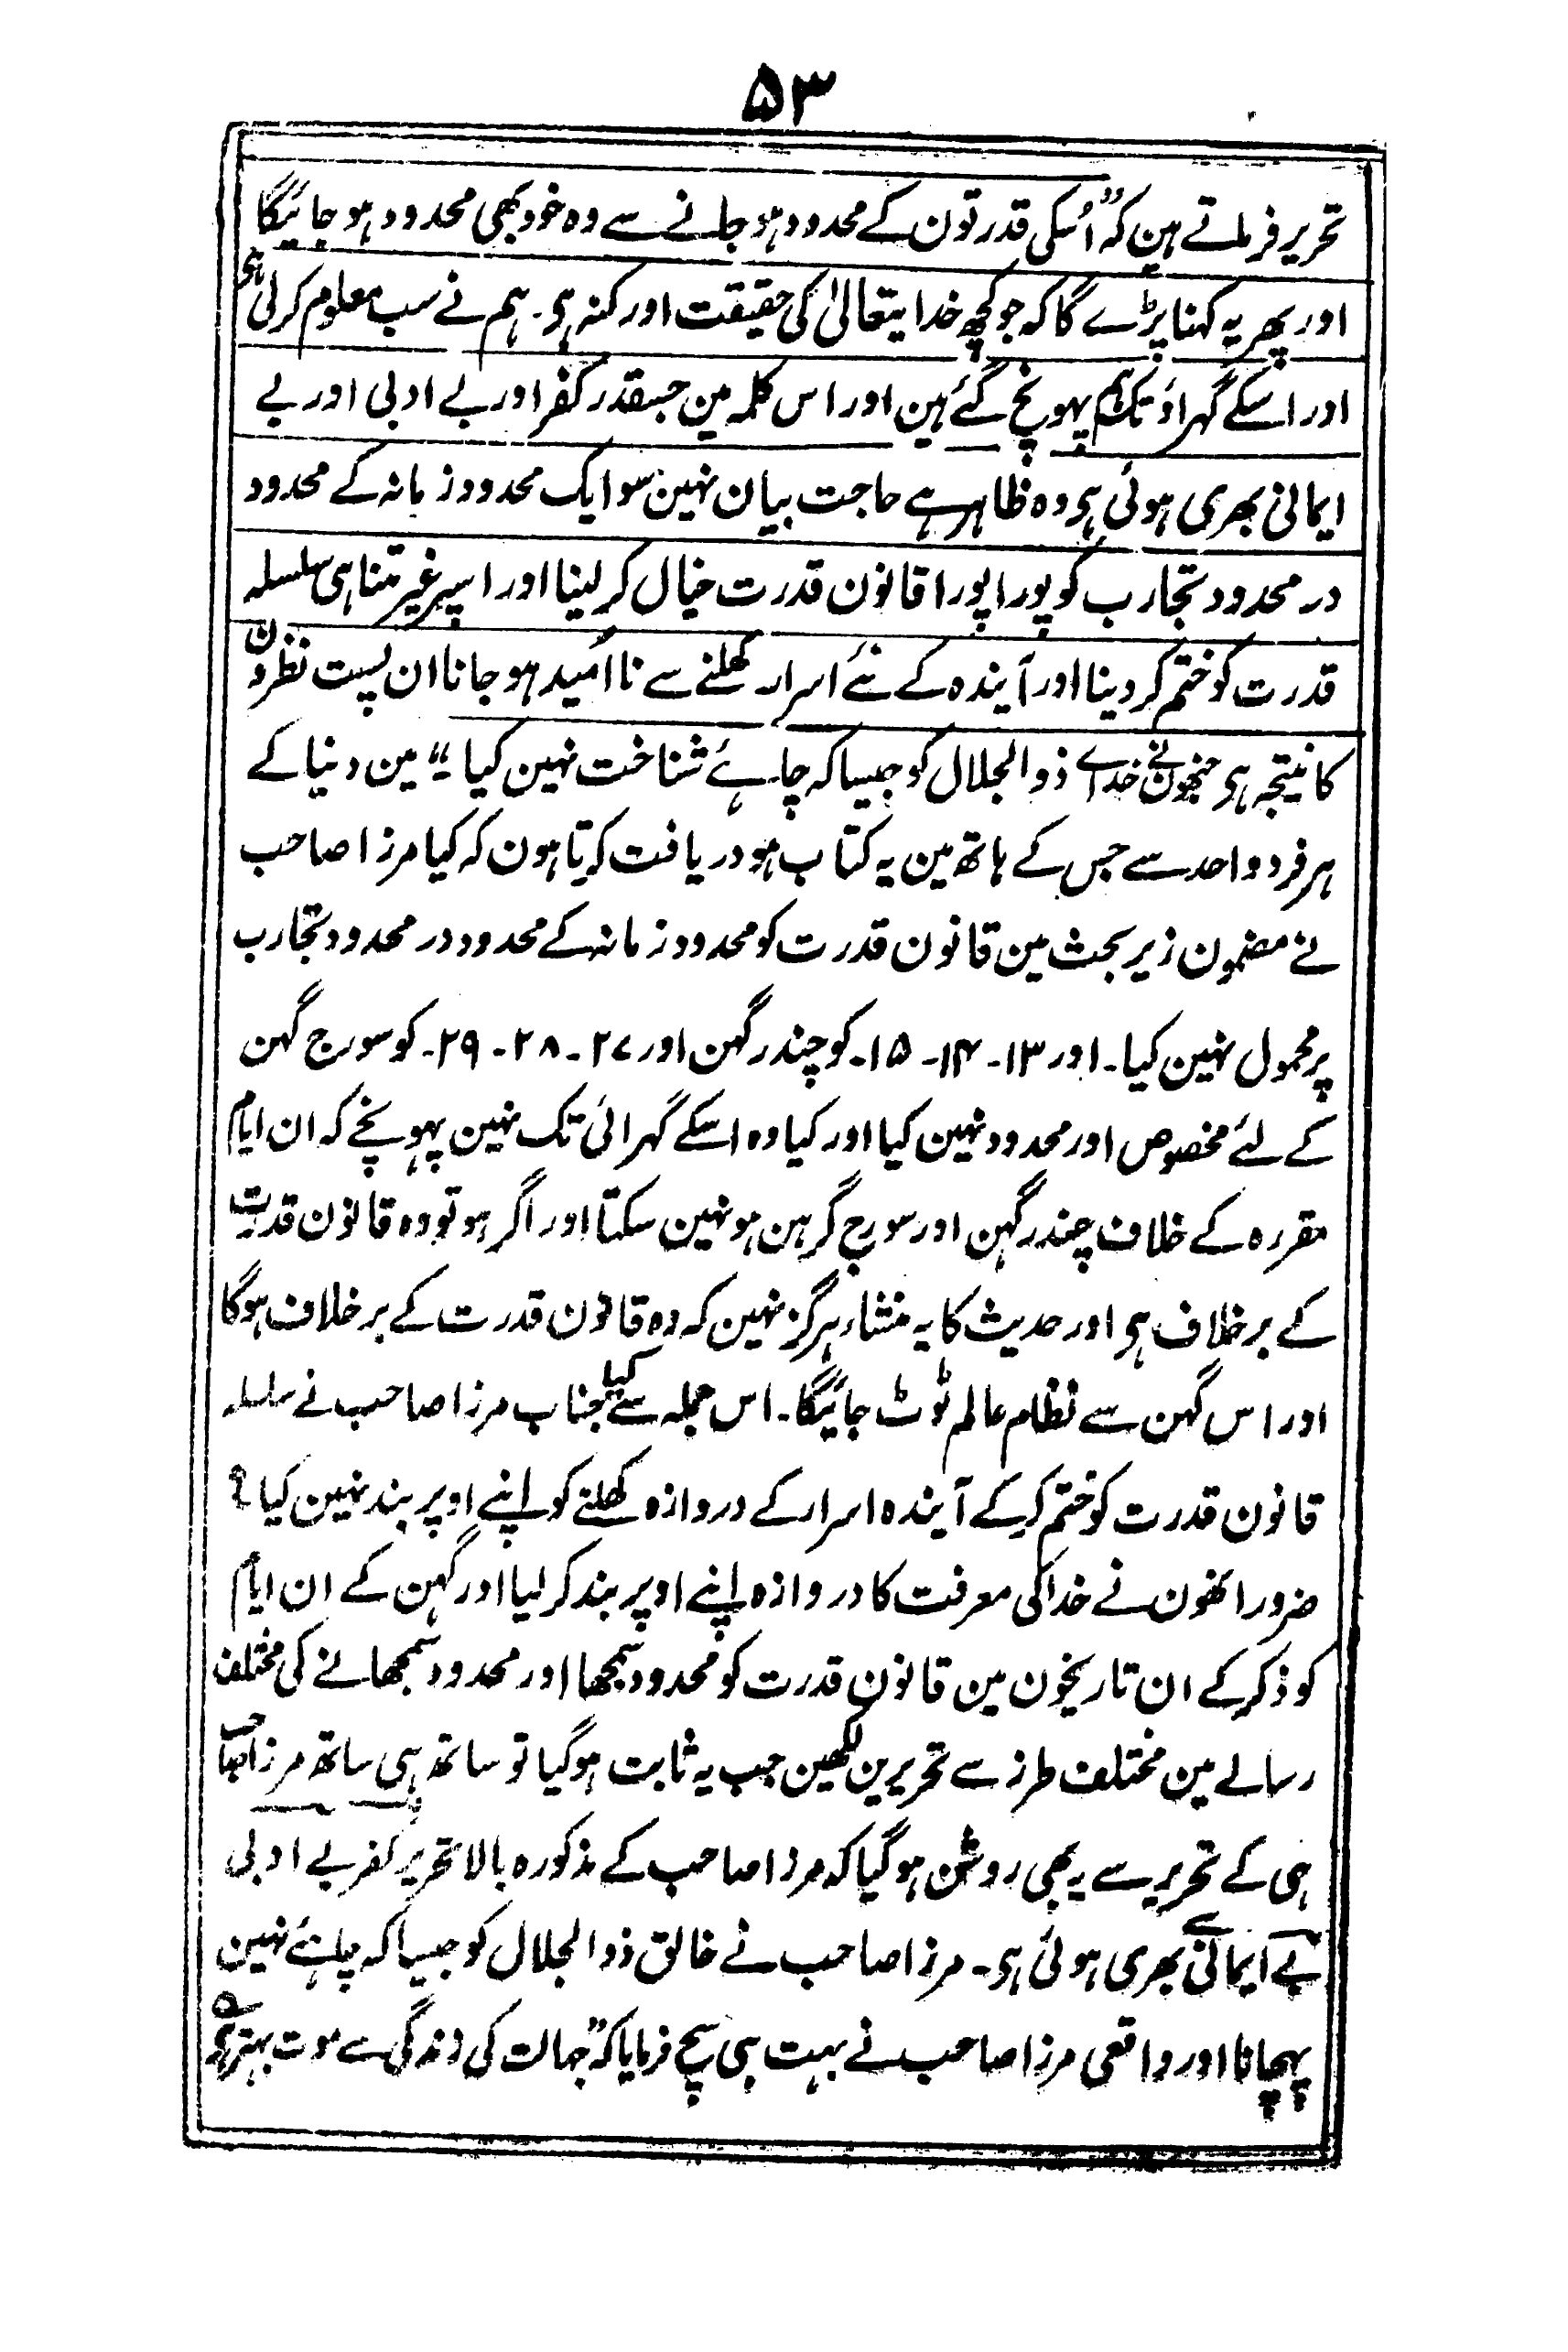 ۵۳
تحریر فرماتے ہین کہ ”اُسکی قدرتون کے محدود ہو جانے سے وہ خود بھی محدود ہو جائیگا
اور پھر یہ کہنا پڑے گا کہ جو کچھ خدایتعالیٰ کی حقیقت اور کنہ ہی۔ ہم نے سب معلوم کر لی ہی
اور اسکے گہراؤ تک ہم پہونچ گئے ہین اور اس کلمہ مین جسقدر کفر اور بے ادبی اور بے
ایمانی بھری ہوئی ہی وہ ظاہر ہے حاجت بیان نہین سو ایک محدود زمانہ کے محدود
در محدود تجارب کو پورا پورا قانون قدرت خیال کر لینا اور اسپر غیر متناہی سلسلہ
قدرت کو ختم کر دینا اور آیندہ کے نئے اسرار کھلنے سے نا اُمید ہو جانا ان پست نظرون
کا نتیجہ ہی جنھون نے خداے ذوالجلال کو جیسا کہ چاہئے شناخت نہین کیا“ مین دنیا کے
ہر فرد واحد سے جس کے ہاتھ مین یہ کتاب ہو دریافت کرتا ہون کہ کیا مرزا صاحب
نے مضمون زیر بحث مین قانون قدرت کو محدود زمانہ کے محدود در محدود تجارب
پر محمول نہین کیا۔ اور ۱۳۔ ۱۴۔ ۱۵۔ کو چندر گہن اور ۲۷۔ ۲۸۔ ۲۹۔ کو سورج گہن
کے لئے مخصوص اور محدود نہین کیا اور کیا وہ اسکے گہرائی تک نہین پہونچے کہ ان ایام
مقررہ کے خلاف چندر گہن اور سورج گرہن ہو نہین سکتا اور اگر ہو تو وہ قانون قدرت
کے برخلاف ہی اور حدیث کا یہ منشاء ہرگز نہین کہ وہ قانون قدرت کے برخلاف ہوگا
اور اس گہن سے نظام عالم ٹوٹ جائیگا۔ اس جملہ سے کیا جناب مرزا صاحب نے سلسلہ
قانون قدرت کو ختم کر کے آیندہ اسرار کے دروازہ کھلنے کو اپنے اوپر بند نہین کیا؟
ضرور انھون نے خدا کی معرفت کا دروازہ اپنے اوپر بند کر لیا اور گہن کے ان ایام
کو ذکر کے ان تاریخون مین قانون قدرت کو محدود سمجھا اور محدود سمجھانے کی مختلف
رسالے مین مختلف طرز سے تحریرین لکھین جب یہ ثابت ہو گیا تو ساتھ ہی ساتھ مرزا صاحب
ہی کے تحریر سے یہ بھی روشن ہو گیا کہ مرزا صاحب کے مذکورہ بالا تحریر کفر بے ادبی
بے ایمانی سے بھری ہوئی ہی۔ مرزا صاحب نے خالق ذوالجلال کو جیسا کہ چاہئے نہین
پہچانا اور واقعی مرزا صاحب نے بہت ہی سچ فرمایا کہ ”جہالت کی زندگی سے موت بہتر ہی